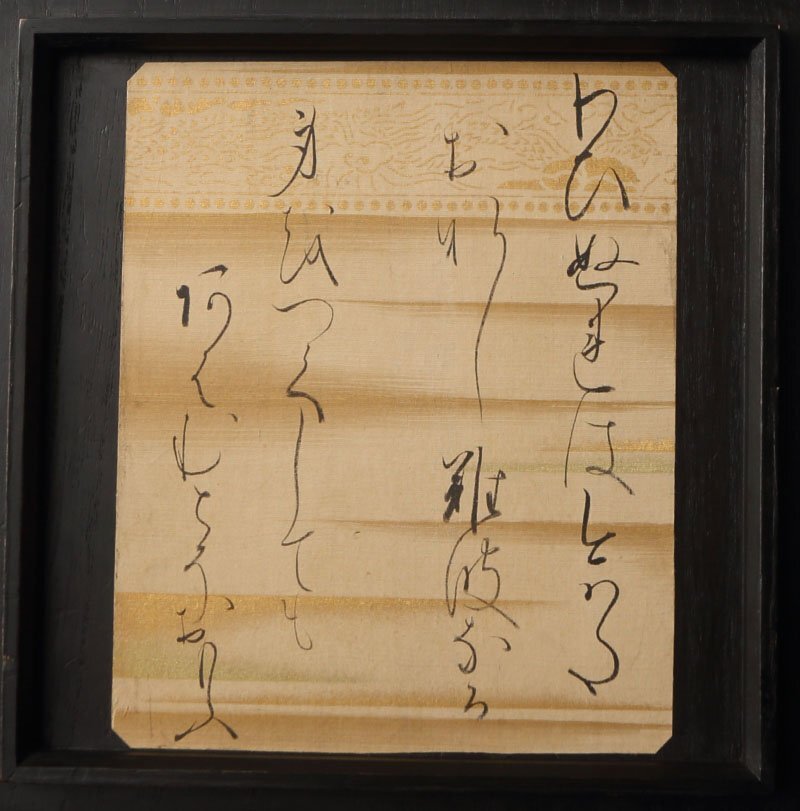 わひぬれは今ハた
おなし難波なる
身をつくしても
阿はむとそおもふ